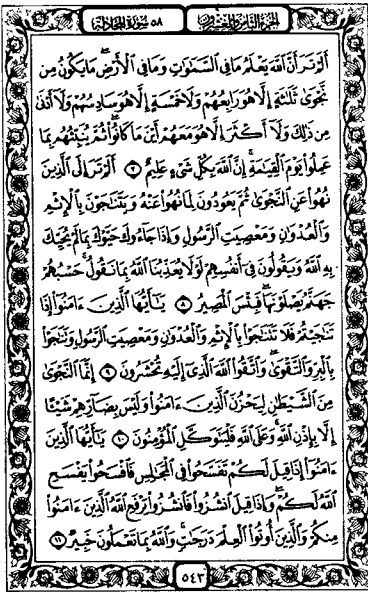 الجزء الثامن والعشرون ٥٨ سورة المجادلة
أَلَمْ تَرَ أَنَّ ٱللَّهَ يَعْلَمُ مَا فِى ٱلسَّمَٰوَٰتِ وَمَا فِى ٱلْأَرْضِ ۖ مَا يَكُونُ مِن
نَّجْوَىٰ ثَلَٰثَةٍ إِلَّا هُوَ رَابِعُهُمْ وَلَا خَمْسَةٍ إِلَّا هُوَ سَادِسُهُمْ وَلَآ أَدْنَىٰ
مِن ذَٰلِكَ وَلَآ أَكْثَرَ إِلَّا هُوَ مَعَهُمْ أَيْنَ مَا كَانُوا۟ ۖ ثُمَّ يُنَبِّئُهُم بِمَا
عَمِلُوا۟ يَوْمَ ٱلْقِيَٰمَةِ ۚ إِنَّ ٱللَّهَ بِكُلِّ شَىْءٍ عَلِيمٌ ٧ أَلَمْ تَرَ إِلَى ٱلَّذِينَ
نُهُوا۟ عَنِ ٱلنَّجْوَىٰ ثُمَّ يَعُودُونَ لِمَا نُهُوا۟ عَنْهُ وَيَتَنَٰجَوْنَ بِٱلْإِثْمِ
وَٱلْعُدْوَٰنِ وَمَعْصِيَتِ ٱلرَّسُولِ وَإِذَا جَآءُوكَ حَيَّوْكَ بِمَا لَمْ يُحَيِّكَ
بِهِ ٱللَّهُ وَيَقُولُونَ فِىٓ أَنفُسِهِمْ لَوْلَا يُعَذِّبُنَا ٱللَّهُ بِمَا نَقُولُ ۚ حَسْبُهُمْ
جَهَنَّمُ يَصْلَوْنَهَا ۖ فَبِئْسَ ٱلْمَصِيرُ ٨ يَٰٓأَيُّهَا ٱلَّذِينَ ءَامَنُوٓا۟ إِذَا
تَنَٰجَيْتُمْ فَلَا تَتَنَٰجَوْا۟ بِٱلْإِثْمِ وَٱلْعُدْوَٰنِ وَمَعْصِيَتِ ٱلرَّسُولِ وَتَنَٰجَوْا۟
بِٱلْبِرِّ وَٱلتَّقْوَىٰ ۖ وَٱتَّقُوا۟ ٱللَّهَ ٱلَّذِىٓ إِلَيْهِ تُحْشَرُونَ ٩ إِنَّمَا ٱلنَّجْوَىٰ
مِنَ ٱلشَّيْطَٰنِ لِيَحْزُنَ ٱلَّذِينَ ءَامَنُوا۟ وَلَيْسَ بِضَآرِّهِمْ شَيْـًٔا
إِلَّا بِإِذْنِ ٱللَّهِ ۚ وَعَلَى ٱللَّهِ فَلْيَتَوَكَّلِ ٱلْمُؤْمِنُونَ ١٠ يَٰٓأَيُّهَا ٱلَّذِينَ
ءَامَنُوٓا۟ إِذَا قِيلَ لَكُمْ تَفَسَّحُوا۟ فِى ٱلْمَجَٰلِسِ فَٱفْسَحُوا۟ يَفْسَحِ
ٱللَّهُ لَكُمْ ۖ وَإِذَا قِيلَ ٱنشُزُوا۟ فَٱنشُزُوا۟ يَرْفَعِ ٱللَّهُ ٱلَّذِينَ ءَامَنُوا۟
مِنكُمْ وَٱلَّذِينَ أُوتُوا۟ ٱلْعِلْمَ دَرَجَٰتٍ ۚ وَٱللَّهُ بِمَا تَعْمَلُونَ خَبِيرٌ ١١
٥٤٣